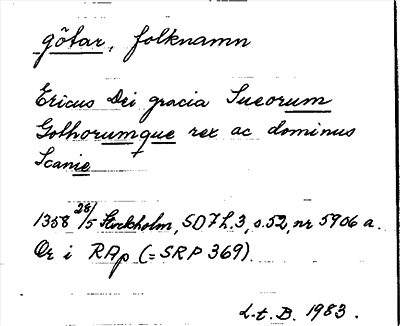 götar, folknamn
Ericus Dei gracia Sueorum
Gothorumque rex ac dominus
Scanie
1358 28/5 Stockholm, SD 7 h.3, s.52, nr 5906 a.
Or i RAp (= SRP 369).
L.t. B. 1983.